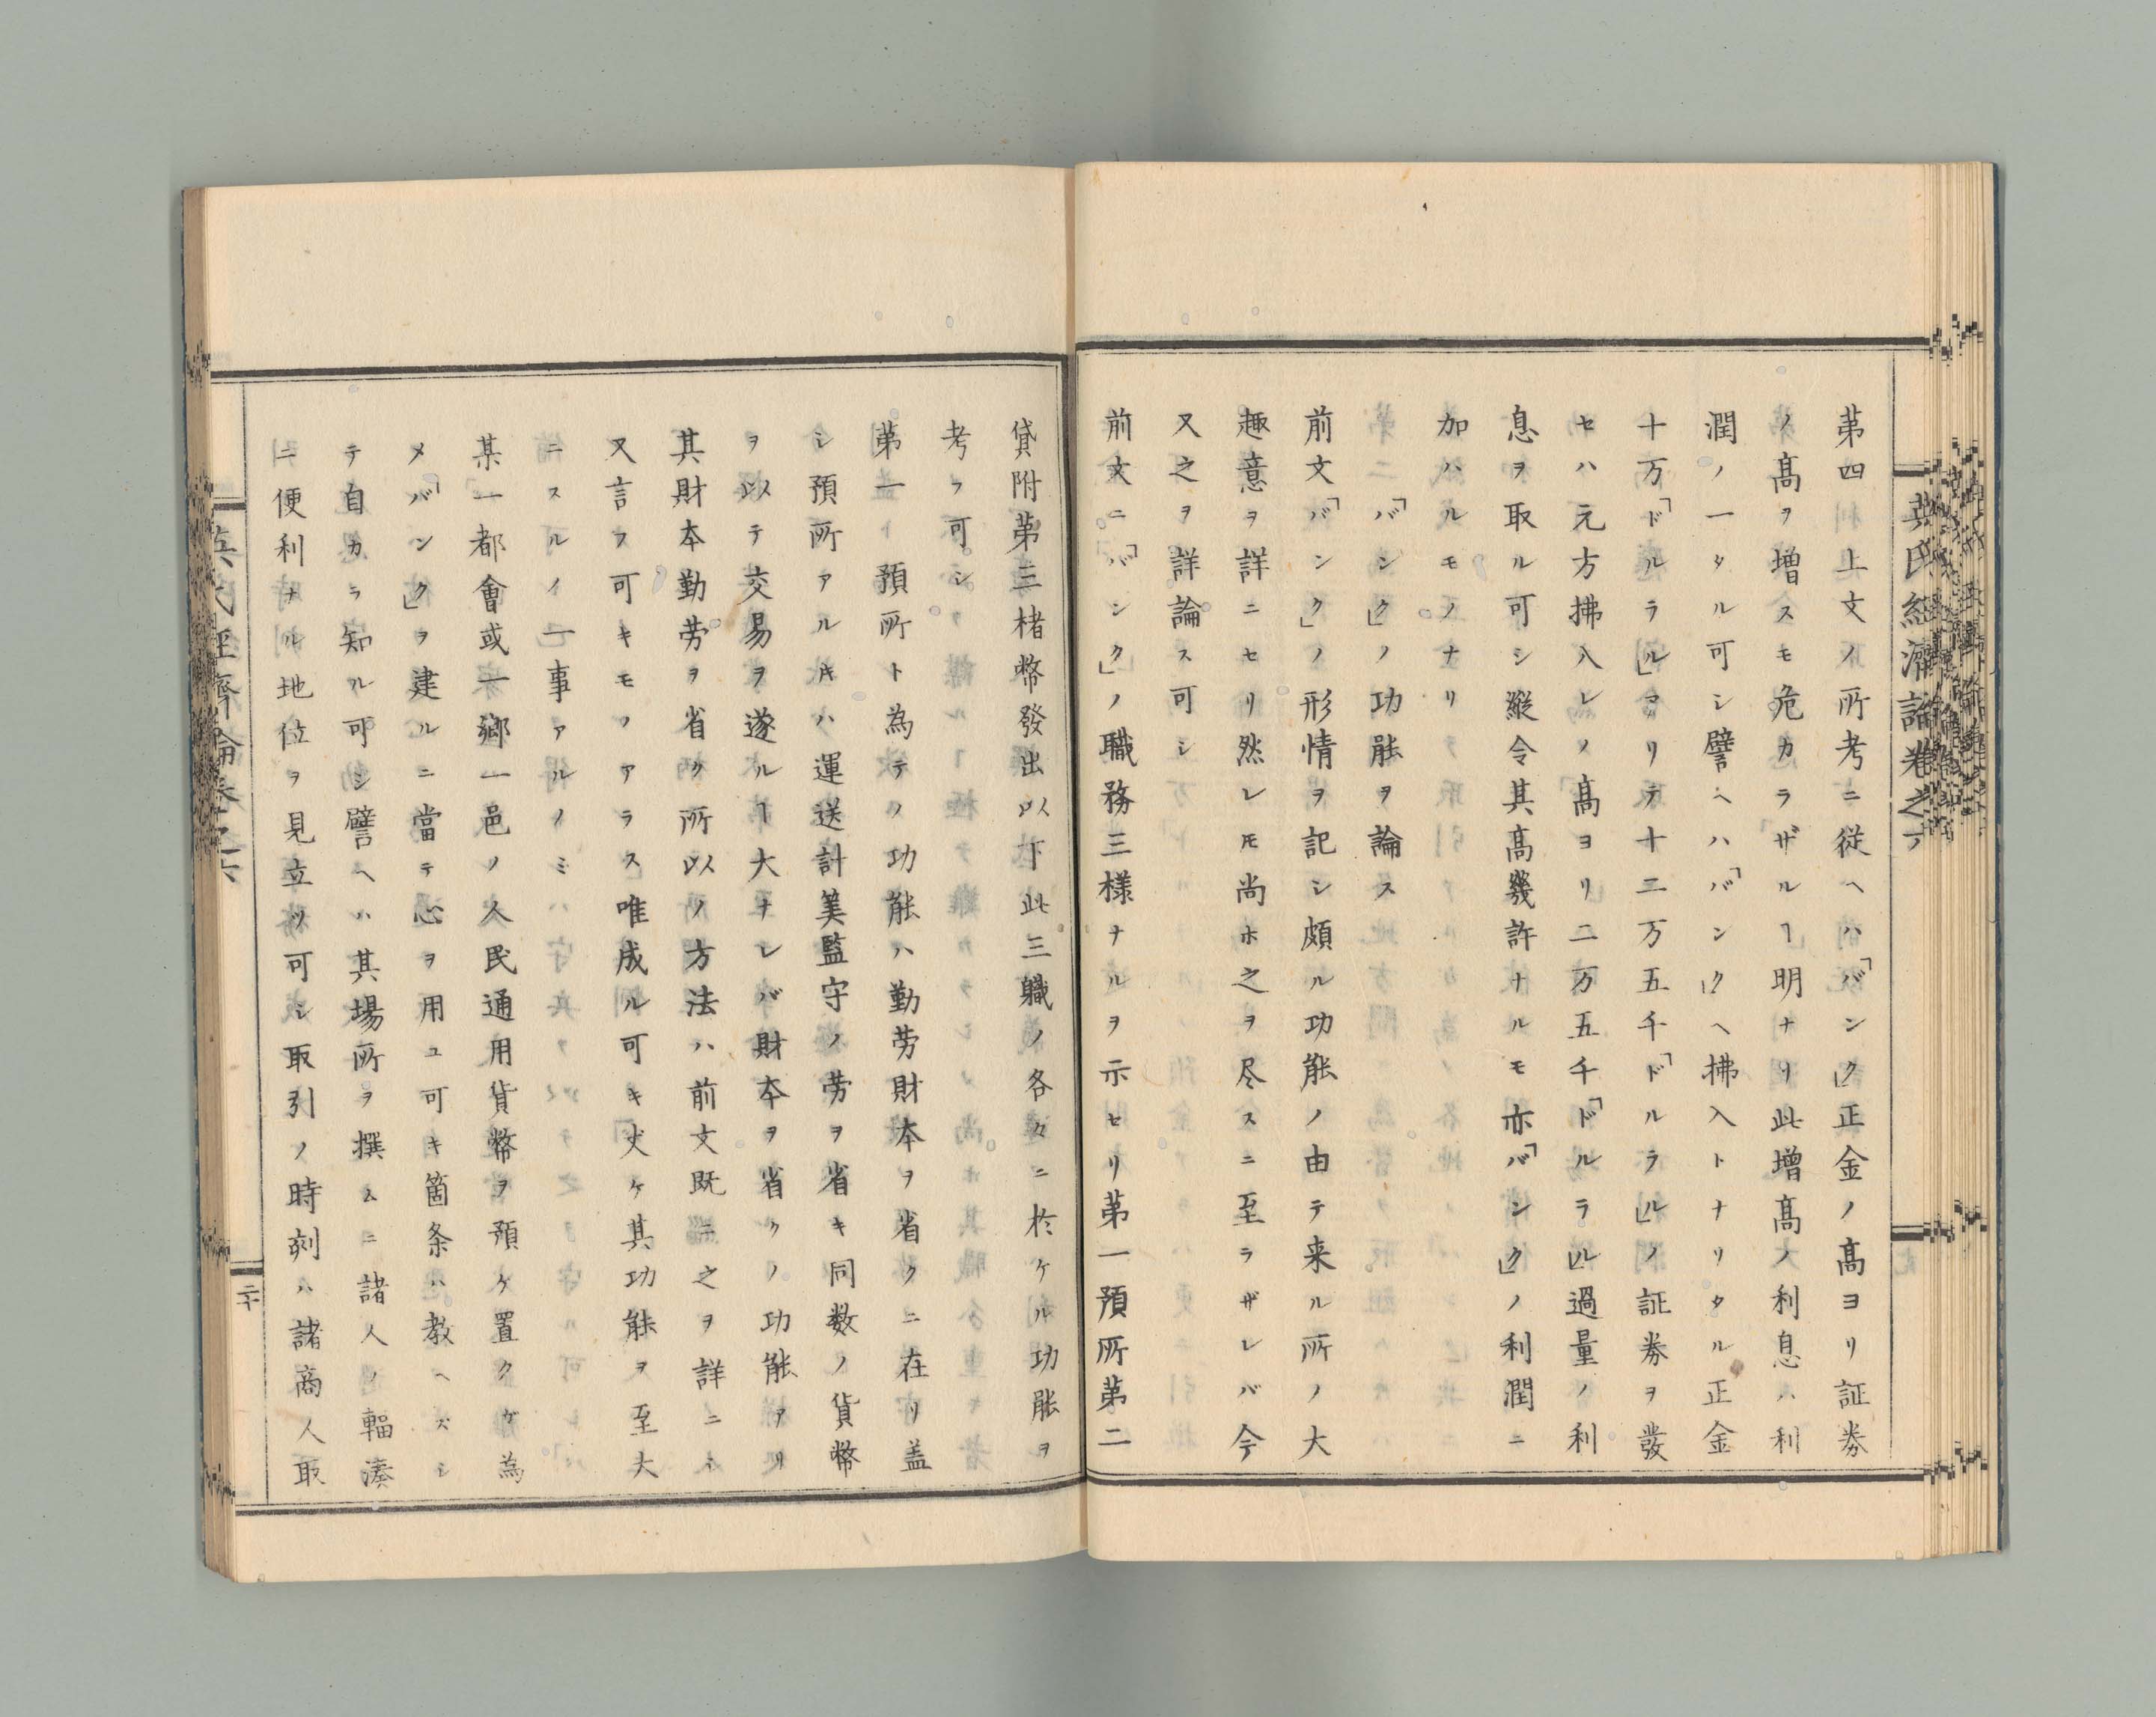 第四 上文ノ所考ニ従ヘハ「バンク」正金ノ高ヨリ証券
ノ高ヲ増スモ危カラザルヿ明ナリ此増高ノ利息ハ利
潤ノ一タル可シ譬ヘハ「バンク」ヘ拂入トナリタル正金
十万「ドルラル」コリテ十二万五千「ドルラル」ノ証券ヲ發
セハ元方拂入レノ高ヨリ二万五千「ドルラル」過量ノ利
息ヲ取ル可シ縦令其高幾許ナルモ亦「バンク」ノ利潤ニ
加ハルモノナリ
「バンク」ノ功能ヲ論ス
前文「バンク」ノ形情ヲ記シ頗ル功能ノ由テ来ル所ノ大
趣意ヲ詳ニセリ然レ𪜈尚ホ之ヲ尽スニ至ラザレバ今
又之ヲ詳論ス可シ
前文ニ「バンク」ノ職務三様ナルヲ示セリ第一預所第二
貸附第三楮幣發出以下此三職ノ各々ニ於ケル功能ヲ
考ラ可シ
第一ト預所ト為テノ功能ハ勤労財本ヲ省クニ在リ盖
シ預所アル𪜈ハ運送計筭監守ノ労ヲ省キ同数ノ貨幣
ヲ以テ交易ヲ遂ルヿ大ナレバ財本ヲ省クノ功能アリ
其財本勤労ヲ省ク所以ノ方法ハ前文既ニ之ヲ詳ニシ
又言フ可キモノアラス唯成ル可キ丈ケ其功能ヲ至大
ニスルノ一事アルノミ
某一都會或一郷一邑ノ人民通用貨幣ヲ預ケ置クケ為
メ「バンク」ヲ建ルニ當テ心ヲ用ユ可キ箇条ハ教ヘズシ
テ自カラ知ル可シ譬ヘハ其場所ヲ撰ムニ諸人ノ輻湊
ニ便利ナル地位ヲ見立ツ可シ取引ノ時刻ハ諸商人取
英氏経済論巻之六
二十